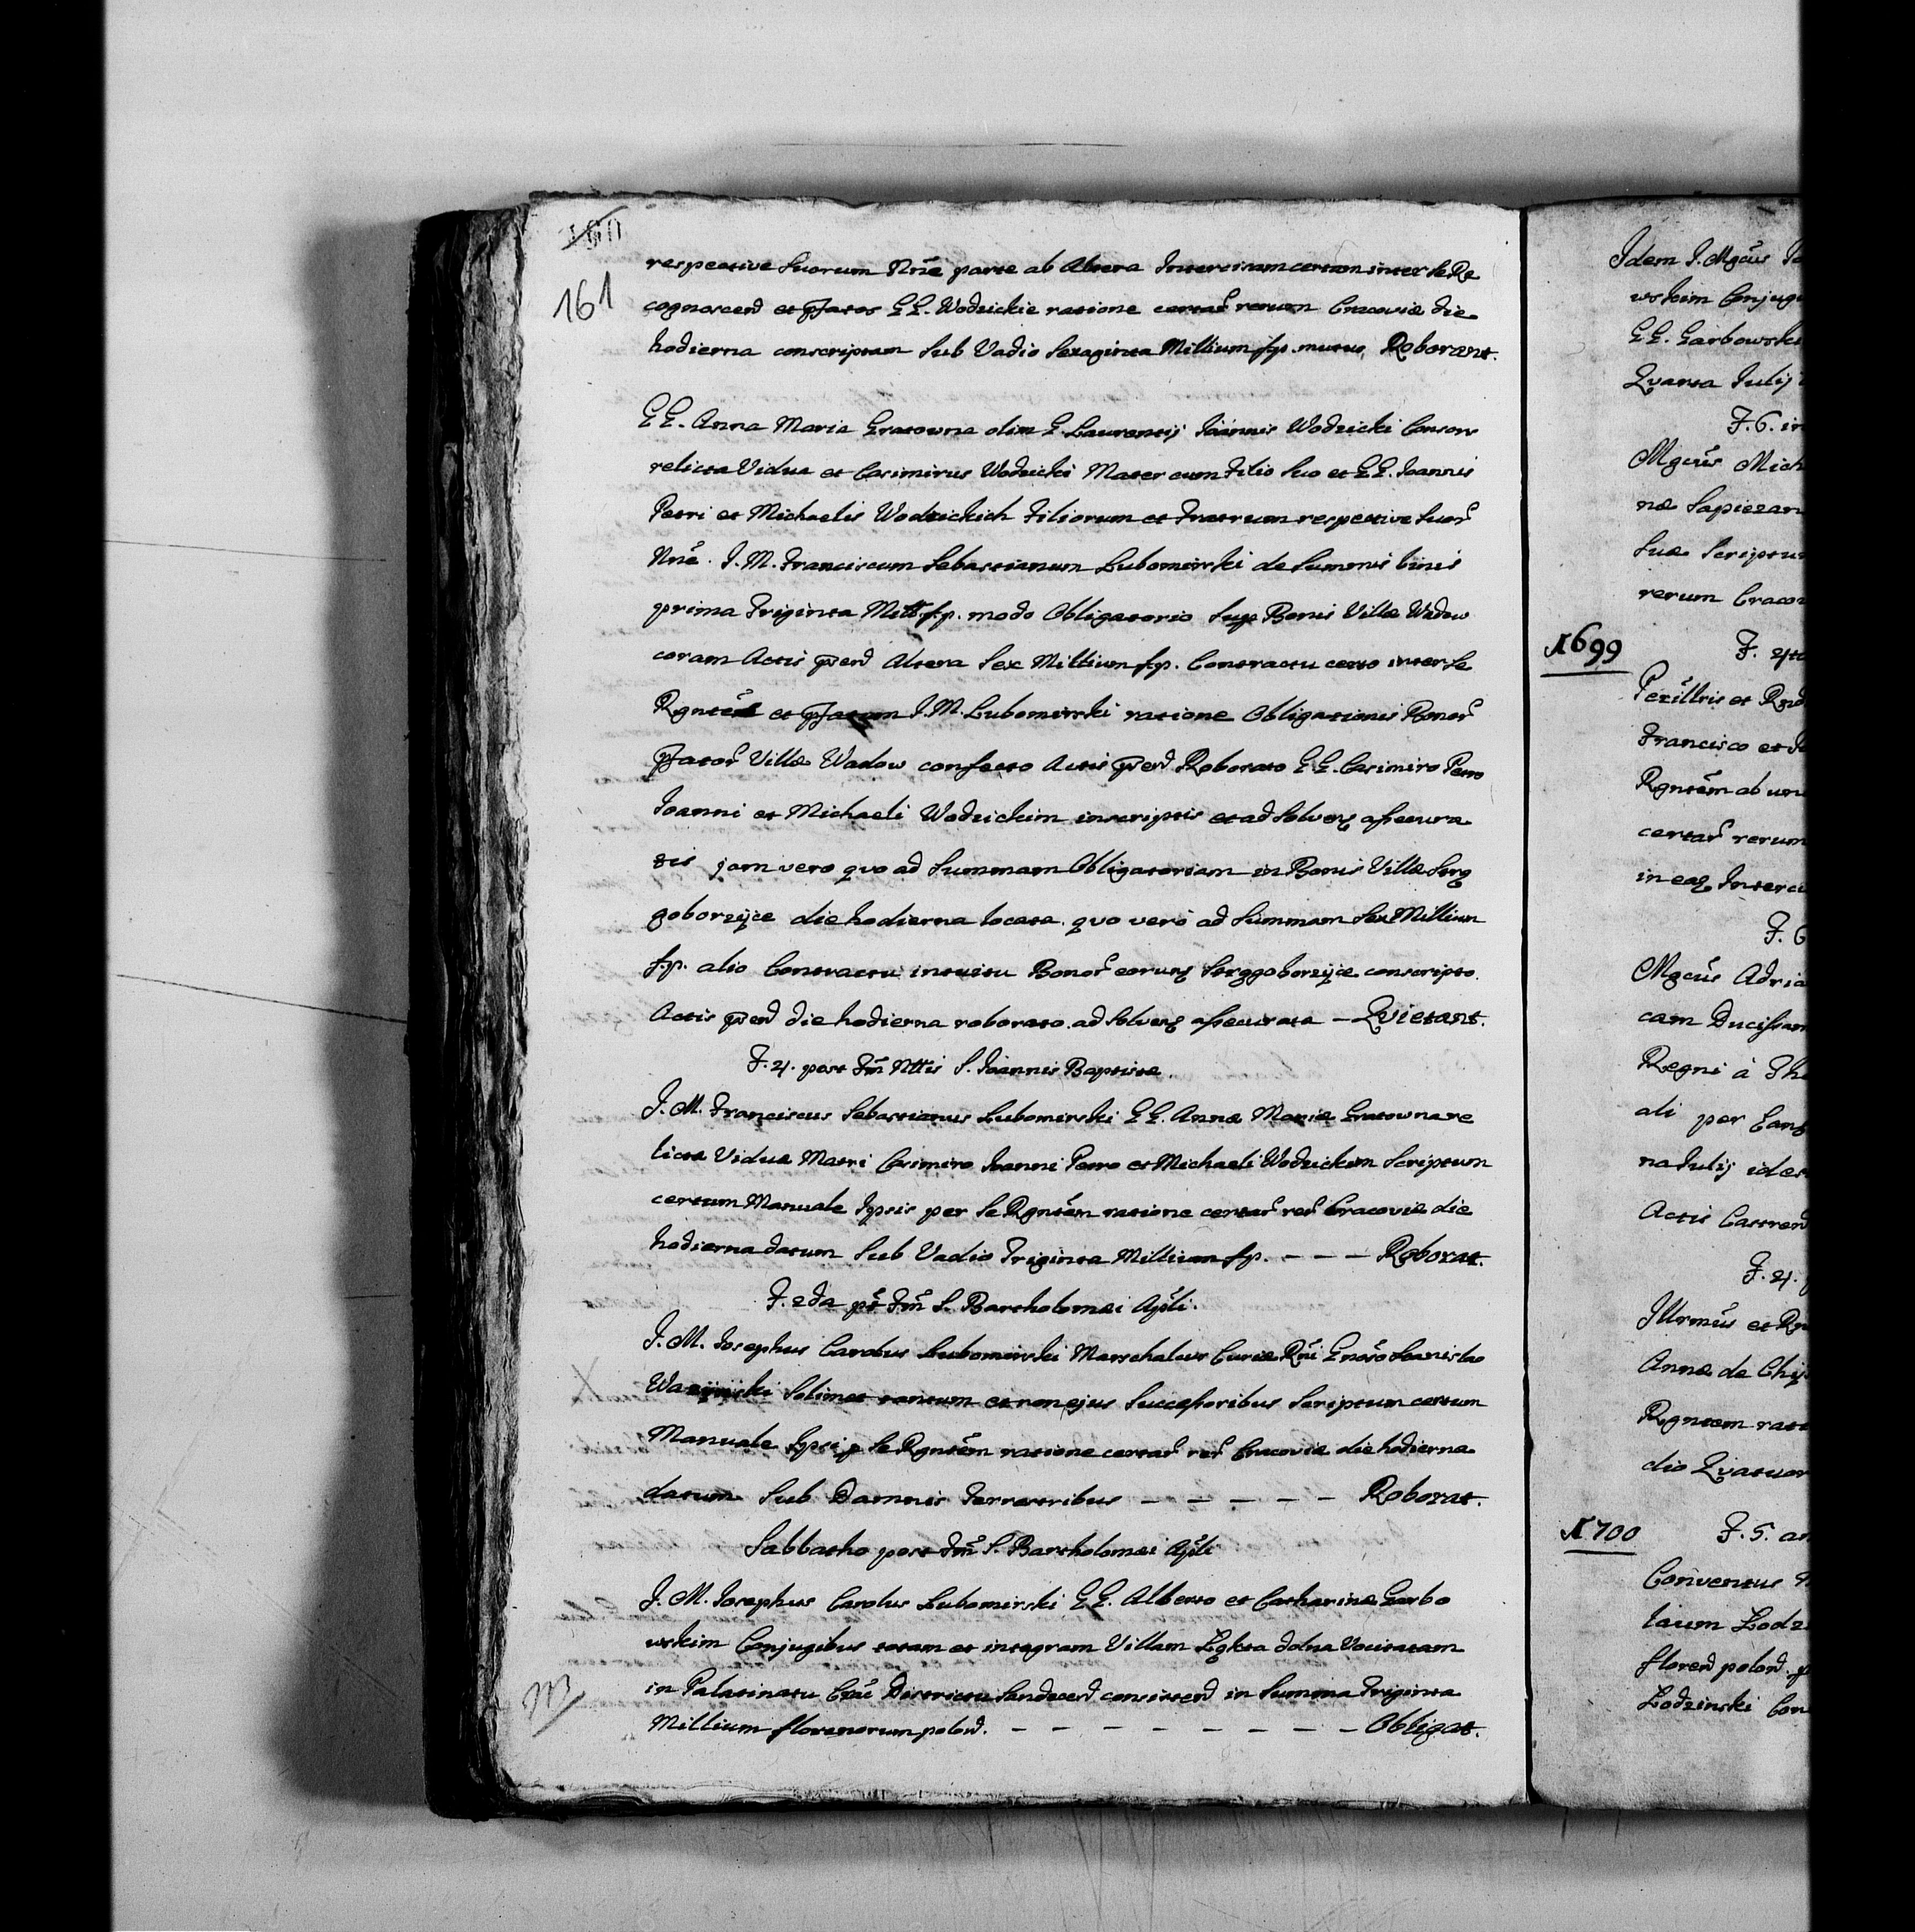 161
respective Suorum Nñe parte ab Altera Intercisam certam inter Se Re
cognoscend et pfatos GG. Wodzickie ratione certar rerum Cracoviæ die
hodierna conscriptam Sub Vadio Sexaginta Millium fp. mutuo Roborant.
GG. Anna Maria Gratowna olim G. Laurentij Joannis Wodzicki Consors
relicta Vidua et Casimirus Wodzicki Mater cum Filio Suo et GG. Joannis
Petri et Michaelis Wodzickich Filiorum et Fratrum respective Suor
Nñe. J. M. Franciscum Sebastianum Lubomirski de Summis binis
prima Triginta Mill. f.p. modo Obligatorio Sup Bonis Villæ Wadow
coram Actis pñd Altera Sex Millium fp. Contractu certo inter Se
Rgntes et pfatum J. M. Lubomirski ratione Obligationis Bonor
pfator Villæ Wadow confecto Actis pñd Roborato GG. Casimiro Petro
Joanni et Michaeli Wodzickim inscriptis et ad Solvend assecura
tis jam vero quo ad Summam Obligatoriam in Bonis Villæ
goborzyce die hodierna locata. quo vero ad Summam Sex Millium
f.p. alio Contractu intuitu Bonor eorund conscripto.
Actis pñd die hodierna roborato. ad Solvend assecurata – Quietant.
F. 4. post Fm Nttis S. Joannis Baptistæ.
J. M. Franciscus Sebastianus Lubomirski GG. Annæ Mariæ Gratowna re
lictæ Viduæ Matri Casimiro Joanni Petro et Michaeli Wodzickim Scriptum
certum Manuale Ipsis per Se Rgntem ratione certar rer Cracoviæ die
hodierna datum Sub Vadio Triginta Millium fp. – – – Roborat.
F. 2da pt Fm S. Bartholomæi Apli.
J. M. Josephus Carolus Lubomirski Marschalcus Curiæ Rni Gnoso Stanislao
Solimet tantum et non ejus Successoribus Scriptum certum
Manuale Ipsi p Se Rgntem ratione certar rer Cracoviæ die hodierna
datum Sub Damnis Terrestribus – – – – – Roborat.
Sabbatho post Fm S. Bartholomæi Apli
J. M. Josephus Carolus Lubomirski GG. Alberto et Catharinæ Garbo
wskim Conjugibus totam et integram Villam Łękta dolna Vocitatam
in Palatinatu Districtu Sandecend consistend in Summa Triginta
Millium florenorum polond. – – – – – – – – – Obligat.
Idem J. Mgcus
wskim Conjug
GG. Garbowski
Quarta Julij
F. 6. in
Mgcus Mich
næ Sapiezan
Suæ Scriptu
rerum Craco
1699
F. 4ta
Perillris et Rnd
Francisco et
Rgntem ab un
certar rerum
in ead Interci
F. 6
Mgcus Adria
cam Ducissam
Regni à
ali per
na Julij idem
Actis Castrend
F. 4.
Illrmus et
Annæ de
Rgntem rati
dio Quatuor
1700
F. 5. an
Conventus
Lodz
florend polond.
Lodzinski Con